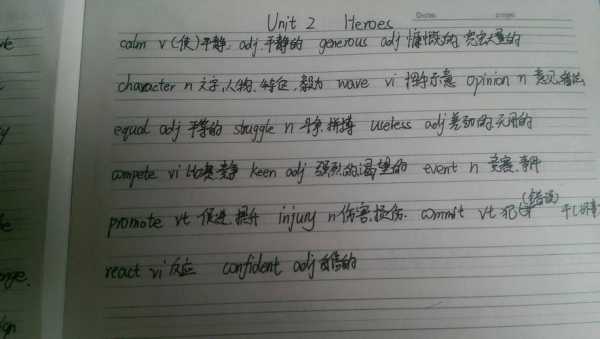 Unit 2 Heroes
calm v (使)平静. adj 平静的 generous adj 慷慨的, 宽宏大量的
character n 文字,人物,特征, wave vi 挥手示意 opinion n 意见,看法
equal adj 平等的 struggle n 斗争,拼搏 useless adj 差劲的,无用的
compete vi 比赛,竞争 keen adj 强烈的,渴望的 event n 竞赛,事件
promote vt 促进,提升 injury n 伤害,损伤. commit vt 犯(错误) 干(坏事)
react vi 反应 confident adj 自信的